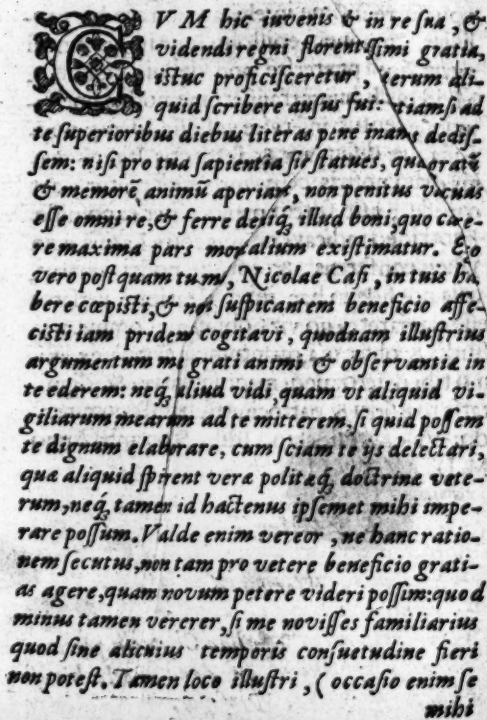 CVM hic iuvenis & in re sua, &
videndi regni florentissimi gratia,
istuc proficisceretur, iterum ali-
quid scribere ausus fui: etiamsi ad
te superioribus diebus literas pene inanes dedis-
sem: nisi pro tua sapientia sic statues, quæ gratū
& memorē animū aperiant, non penitus vacuas
esse omni re, & ferre deniq́; illud boni, quo care-
re maxima pars mortalium existimatur. Ego
vero postquam tu me, Nicolae Casi, in tuis ha-
bere cœpisti, & nil suspicantem beneficio affe-
cisti iam pridem cogitavi, quodnam illustrius
argumentum mei grati animi & observantiæ in
te ederem: neq́; aliud vidi, quam vt aliquid vi-
giliarum mearum ad te mitterem, si quid possem
te dignum elaborare, cum sciam te ijs delectari,
quæ aliquid spirent veræ politæq́; doctrinæ vete-
rum, neq́; tamen id hactenus ipsemet mihi impe-
rare possum. Valde enim vereor, ne hanc ratio-
nem secutus, non tam pro vetere beneficio grati-
as agere, quam novum petere videri possim: quod
minus tamen vererer, si me novisses familiarius
quod sine alicuius temporis consuetudine fieri
non potest. Tamen loco illustri, (occasio enim se
mihi